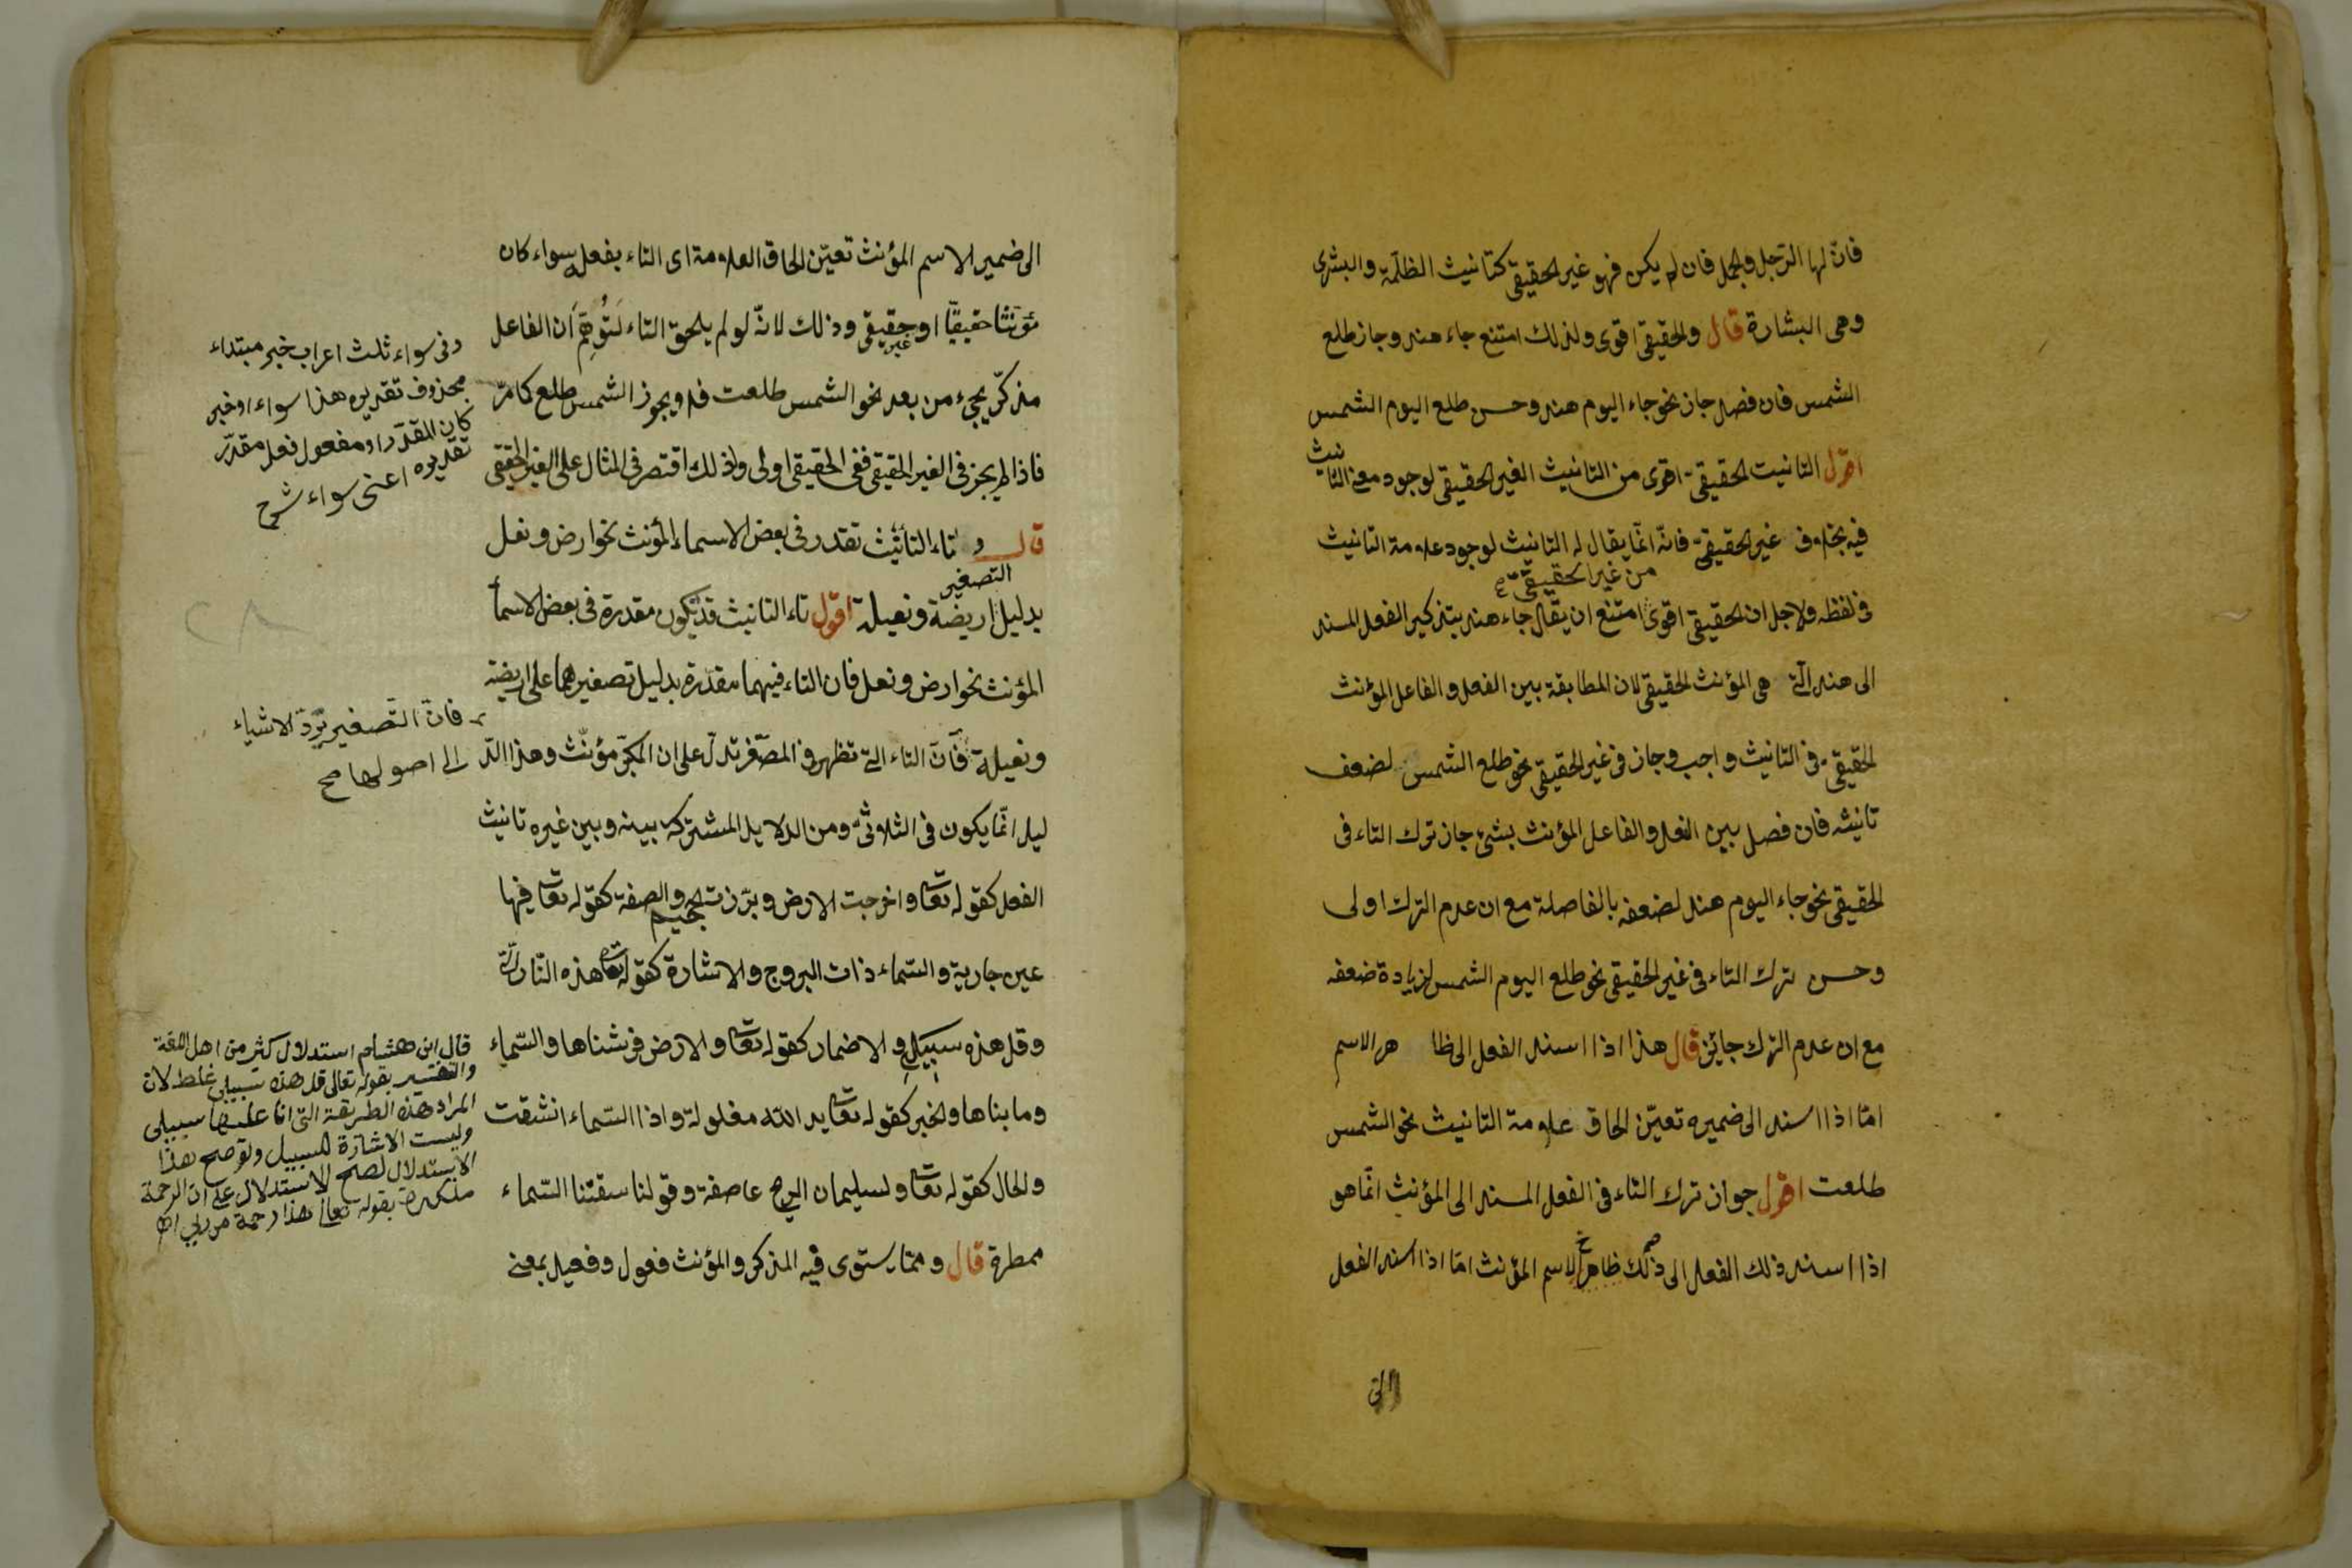 فان لها الرجل والجمل فان لم يكن فهو غير الحقيقى كتانيث الظلمة والبشرى
وهى البشارة قال والحقيقى اقوى ولذلك امتنع جاء هند وجاز طلع
الشمس فان فصل جاز نحو جاء اليوم هند وحسن طلع اليوم الشمس
اقول التانيث الحقيقى اقوى من التانيث الغير الحقيقى لوجود معنى التانيث
فيه بخلاف غير الحقيقى فانّه انّما يقال له التانيث لوجود علامة التانيث
من غير الحقيقى
فى لفظه ولاجل ان الحقيقى اقوى امتنع ان يقال جاء هند بتذكير الفعل المسند
الى هند التى هى المؤنث الحقيقى لان المطابقة بين الفعل والفاعل المؤنث
الحقيقى فى التانيث واجب وجاز فى غير الحقيقى نحو طلع الشمس لضعف
تانيثه فان فصل بين الفعل والفاعل المؤنث بشئ جاز ترك التاء فى
الحقيقى نحو جاء اليوم هند لضعفه بالفاصلة مع ان عدم الترك اولى
وحسن ترك التاء فى غير الحقيقى نحو طلع اليوم الشمس لزيادة ضعفه
مع ان عدم الترك جائز قال هذا اذا اسند الفعل الى ظا هر الاسم
امّا اذا اسند الى ضميره تعيّن الحاق علامة التانيث نحو الشمس
طلعت اقول جواز ترك التاء فى الفعل المسند الى المؤنث انّما هو
اذا اسند ذلك الفعل الى ذلك ظاهر الاسم المؤنث امّا اذا اسند الفعل
الى
الى ضمير الاسم المؤنث تعيّن الحاق العلامة اى التاء بفعله سواء كان
مؤنثا حقيقيّا او غير حقيقى وذلك لانّه لو لم يلحق التاء لتُوهِّم أن الفاعل
مذكّر يجىء من بعد نحو الشمس طلعت فلا ويجوز الشمس طلع كما مرّ
فاذا لم يجز فى الغير الحقيقى ففى الحقيقى اولى ولذلك اقتصر فى المثال على الغير الحقيقى
قال و تاء التأنيث تقدر فى بعض الاسماء المؤنث نحو ارض ونعل
التصغير
بدليل اريضة ونعيلة اقول تاء التانيث قد يكون مقدرة فى بعض الاسمأ
المؤنث نحو ارض ونعل فان التاء فيهما مقدّرة بدليل تصغيرهما على اريضة
ونعيلة فانّ التاء التى تظهر فى المصغّر تدلّ على ان المكبّر مؤنّث وهذا الدّ
ليل انّما يكون فى الثلاثى ومن الدلايل المشتركة بينه وبين غيره تانيث
الفعل كقوله تعا واخرجت الارض وبرّزت الجحيم والصفة كقوله تعا فيها
عين جارية والسّماء ذات البروج والاشارة كقوله تعا هذه النّار الّتى
وقل هذه سبيلى والاضمار كقوله تعا والارض فرشناها والسّماء
وما بناها والخبر كقوله تعا يد الله مغلولة واذا السّماء انشقت
والحال كقوله تعا ولسليمان الريح عاصفة وقولنا سقتنا السّماء
ممطرة قال وممّا يستوى فيه المذكر والمؤنث فعول وفعيل بمعنى
وفى سواء ثلث اعراب خبر مبتداء
محذوف تقديره هذا سواء او خبر
كان المقدّر او مفعول فعل مقدّر
تقديره اعنى سواء شرح
فانّ التّصغير يردّ الاشياء
الى اصولها صح
قال ابن هشام استدلال كثير من اهل اللغة
والتفسير بقوله تعالى قل هذه سبيلى غلط لان
المراد هذه الطريقة التى انا عليها سبيلى
وليست الاشارة للسبيل ولو صح هذا
الاستدلال لصح الاستدلال على ان الرحمة
مذكرة بقوله تعالى هذا رحمة من ربى اه